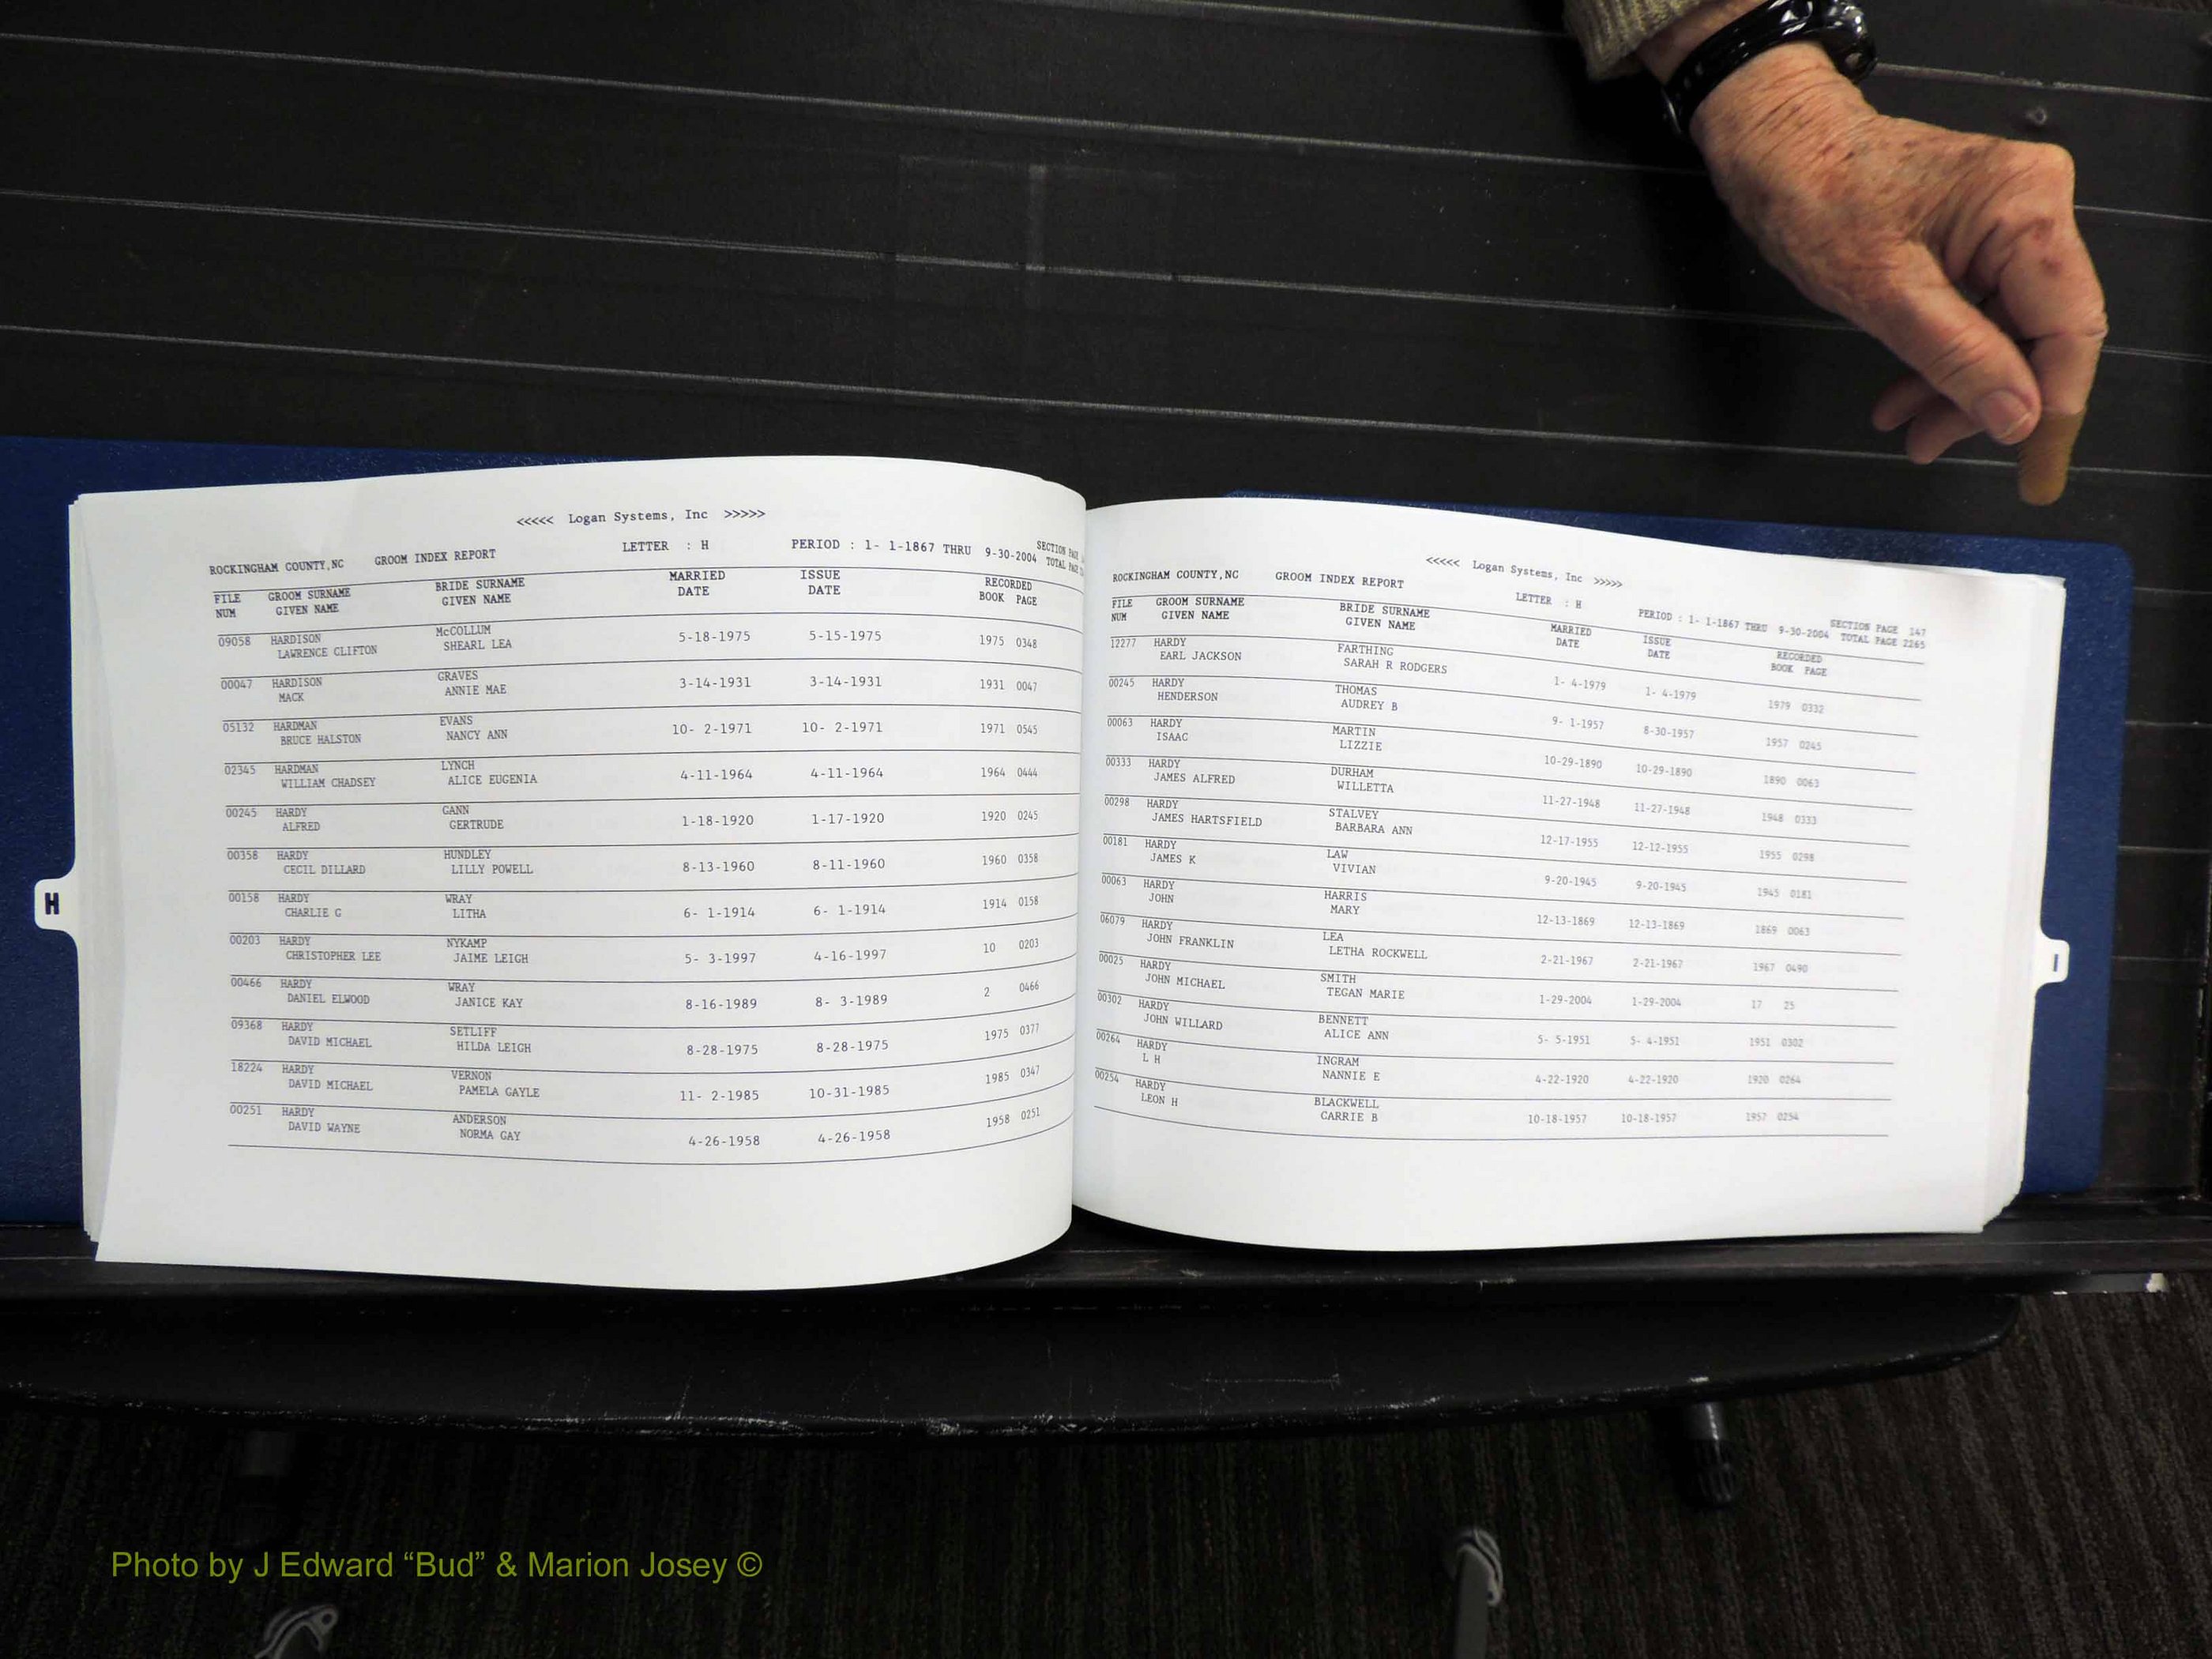 <<<<< Logan Systems, Inc >>>>>
ROCKINGHAM COUNTY,NC GROOM INDEX REPORT LETTER : H PERIOD : 1- 1-1867 THRU 9-30-2004 SECTION PAGE
TOTAL PAGE
FILE GROOM SURNAME BRIDE SURNAME MARRIED ISSUE RECORDED
NUM GIVEN NAME GIVEN NAME DATE DATE BOOK PAGE
09058 HARDISON McCOLLUM 5-18-1975 5-15-1975 1975 0348
LAWRENCE CLIFTON SHEARL LEA
00047 HARDISON GRAVES 3-14-1931 3-14-1931 1931 0047
MACK ANNIE MAE
05132 HARDMAN EVANS 10- 2-1971 10- 2-1971 1971 0545
BRUCE HALSTON NANCY ANN
02345 HARDMAN LYNCH 4-11-1964 4-11-1964 1964 0444
WILLIAM CHADSEY ALICE EUGENIA
00245 HARDY GANN 1-18-1920 1-17-1920 1920 0245
ALFRED GERTRUDE
00358 HARDY HUNDLEY 8-13-1960 8-11-1960 1960 0358
CECIL DILLARD LILLY POWELL
00158 HARDY WRAY 6- 1-1914 6- 1-1914 1914 0158
CHARLIE G LITHA
00203 HARDY NYKAMP 5- 3-1997 4-16-1997 10 0203
CHRISTOPHER LEE JAIME LEIGH
00466 HARDY WRAY 8-16-1989 8- 3-1989 2 0466
DANIEL ELWOOD JANICE KAY
09368 HARDY SETLIFF 8-28-1975 8-28-1975 1975 0377
DAVID MICHAEL HILDA LEIGH
18224 HARDY VERNON 11- 2-1985 10-31-1985 1985 0347
DAVID MICHAEL PAMELA GAYLE
00251 HARDY ANDERSON 4-26-1958 4-26-1958 1958 0251
DAVID WAYNE NORMA GAY
H
<<<<< Logan Systems, Inc >>>>>
ROCKINGHAM COUNTY,NC GROOM INDEX REPORT LETTER : H PERIOD : 1- 1-1867 THRU 9-30-2004 SECTION PAGE 147
TOTAL PAGE 2265
FILE GROOM SURNAME BRIDE SURNAME MARRIED ISSUE RECORDED
NUM GIVEN NAME GIVEN NAME DATE DATE BOOK PAGE
12277 HARDY FARTHING 1- 4-1979 1- 4-1979 1979 0332
EARL JACKSON SARAH R RODGERS
00245 HARDY THOMAS 9- 1-1957 8-30-1957 1957 0245
HENDERSON AUDREY B
00063 HARDY MARTIN 10-29-1890 10-29-1890 1890 0063
ISAAC LIZZIE
00333 HARDY DURHAM 11-27-1948 11-27-1948 1948 0333
JAMES ALFRED WILLETTA
00298 HARDY STALVEY 12-17-1955 12-12-1955 1955 0298
JAMES HARTSFIELD BARBARA ANN
00181 HARDY LAW 9-20-1945 9-20-1945 1945 0181
JAMES K VIVIAN
00063 HARDY HARRIS 12-13-1869 12-13-1869 1869 0063
JOHN MARY
06079 HARDY LEA 2-21-1967 2-21-1967 1967 0490
JOHN FRANKLIN LETHA ROCKWELL
00025 HARDY SMITH 1-29-2004 1-29-2004 17 25
JOHN MICHAEL TEGAN MARIE
00302 HARDY BENNETT 5- 5-1951 5- 4-1951 1951 0302
JOHN WILLARD ALICE ANN
00264 HARDY INGRAM 4-22-1920 4-22-1920 1920 0264
L H NANNIE E
00254 HARDY BLACKWELL 10-18-1957 10-18-1957 1957 0254
LEON H CARRIE B
I
Photo by J Edward “Bud” & Marion Josey ©